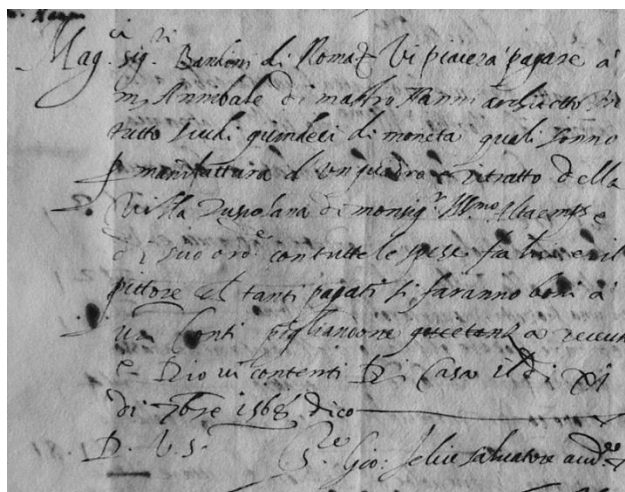 Mag.ci sig.ri Bandini di Roma Vi piacerà pagare a
m. Annibale di mastro Nanni architetto in
tutto scudi quindeci di moneta quali sonno
p manifattura d un quadro è ritratto della
Villa Tusculana di monsig.r Ill.mo Altaemps e
di suo ord.e con tutte le spese fa lui e il
pittore ch tanti pagati si faranno boni a
n.ri Conti pigliandone quetanza
e Dio vi contenti Di Casa il di XI
di 7bre 1568 dico
D. V. S.
S.re Gio: felice salvatore aud.re